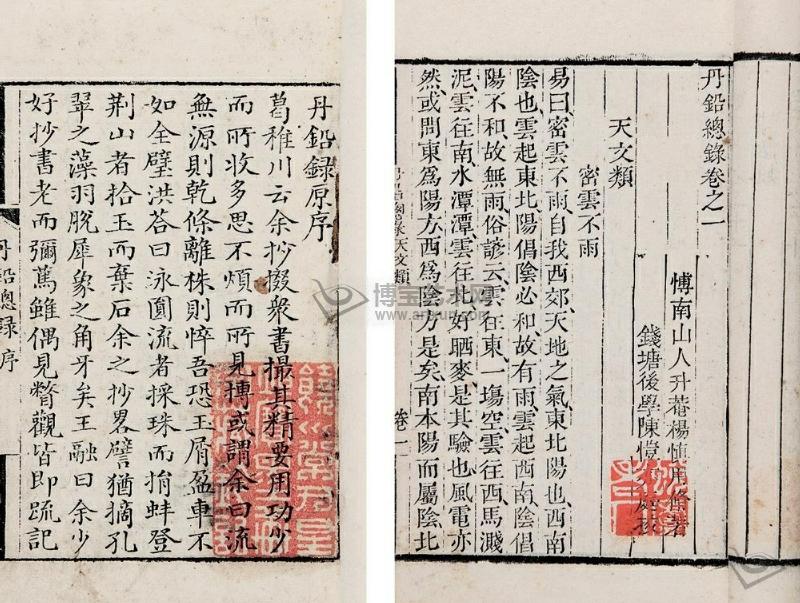 丹鉛録原序
葛稚川云余抄掇衆書撮其精要用功少
而所收多思不煩而所見博或謂余曰流
無源則乾條離株則悴吾恐玉屑盈車不
如全璧洪荅曰泳圓流者採珠而捐蚌登
荆山者拾玉而棄石余之抄畧譬猶摘孔
翠之藻羽脫犀象之角牙矣王融曰余少
好抄書老而彌篤雖偶見瞥觀皆即疏記
丹鉛總録序
丹鉛總錄卷之一
博南山人升菴楊慎用修著
錢塘後學陳愷
天文類
密雲不雨
易曰密雲不雨自我西郊天地之氣東北陽也西南
陰也雲起東北陽倡陰必和故有雨雲起西南陰倡
陽不和故無雨俗諺云雲往東一塲空雲往西馬濺
泥雲往南水潭潭雲往北好晒麥是其驗也風電亦
然或問東爲陽方西爲陰方是矣南本陽而屬陰北
天文類
卷一
博宝艺术网
www.artxun.com